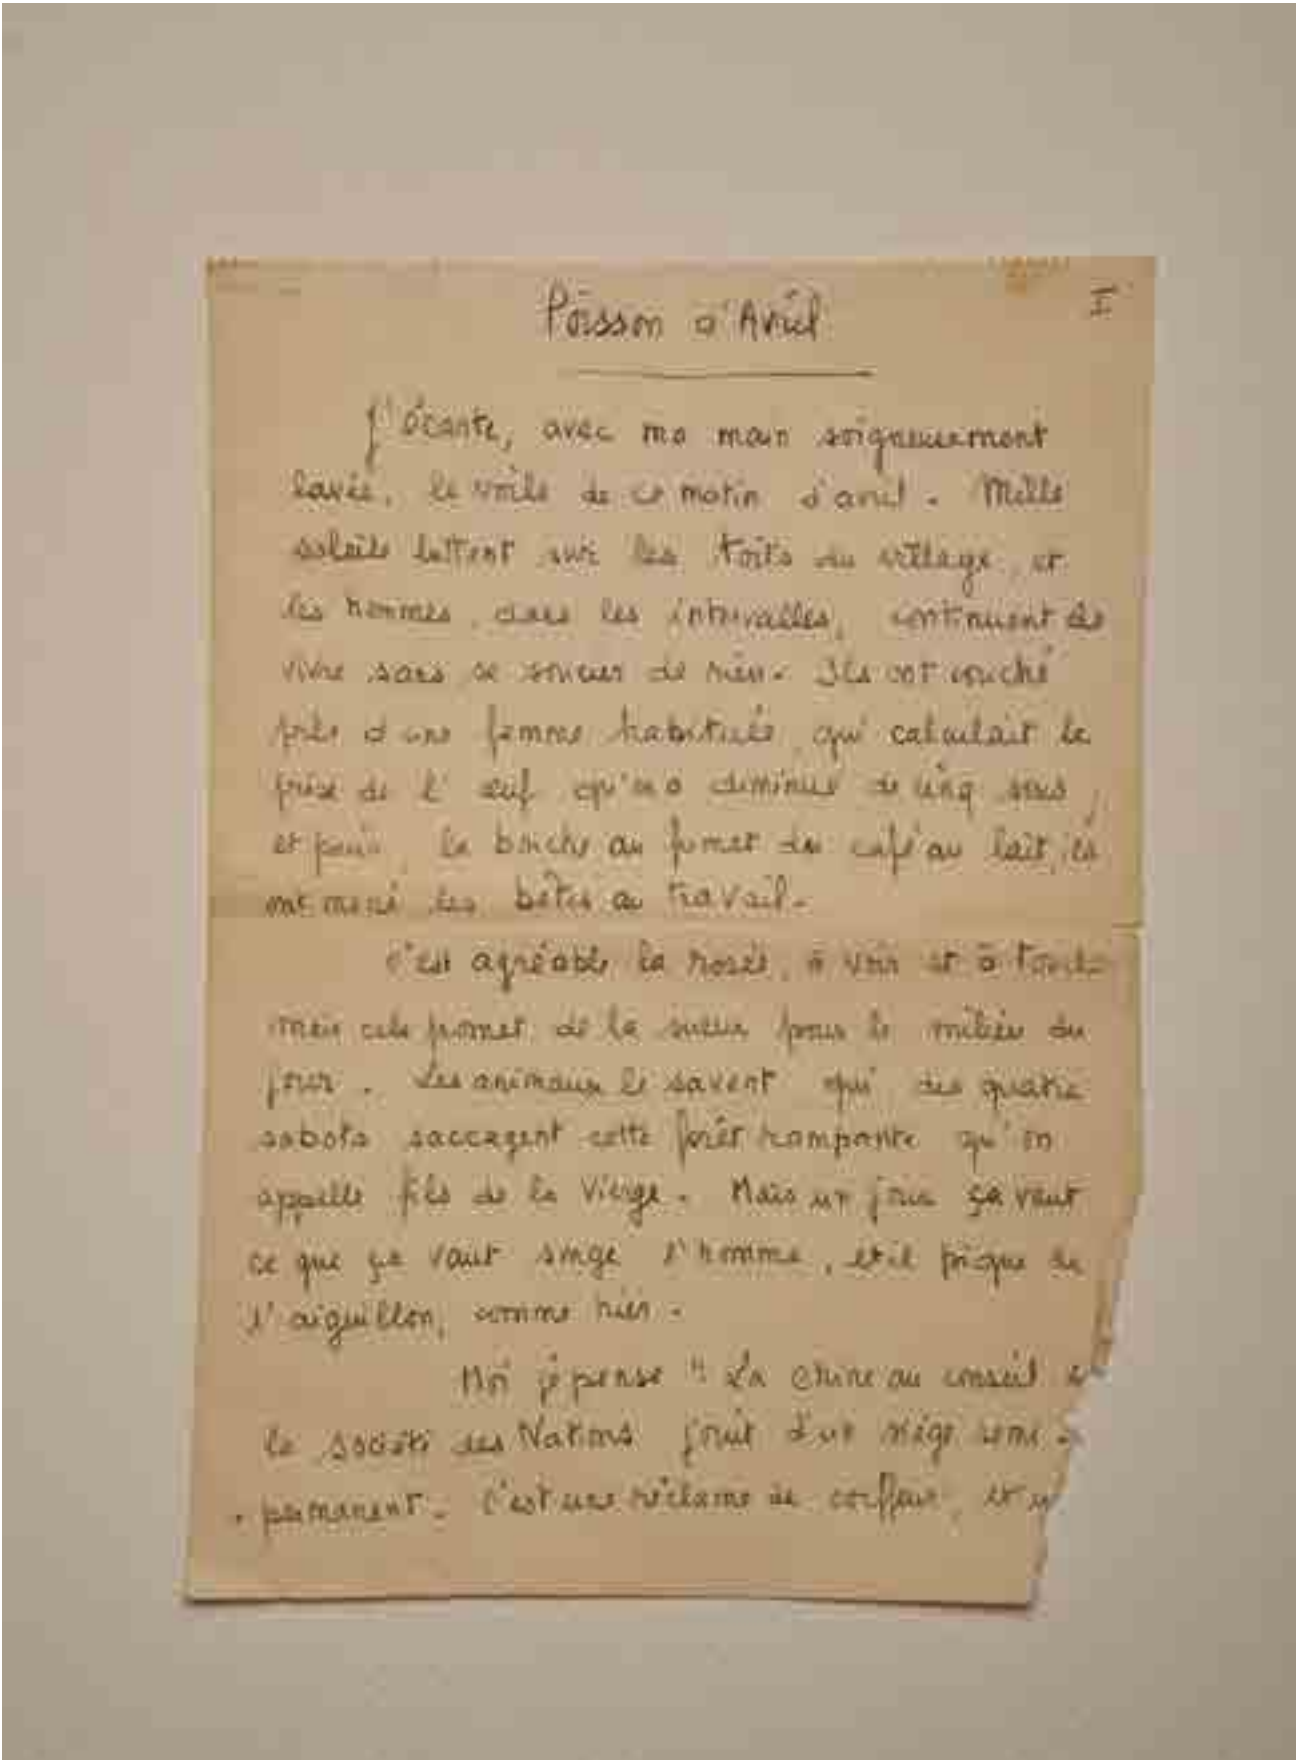 Poisson d'Avril
I
J'écarte, avec ma main soigneusement
lavée, le voile de ce matin d'avril. Mille
soleils luttent sur les toits du village, et
les hommes, dans les intervalles, continuent de
vivre sans se soucier de rien. Ils ont couché
près d'une femme habituée qui calculait le
prix de l'œuf qu'on a diminué de cinq sous,
et puis, la bouche au fumet du café au lait, ils
ont mené les bêtes au travail.
C'est agréable la rosée, à voir et à
mais cela promet de la sueur pour le milieu du
jour. Les animaux le savent qui des quatre
sabots saccagent cette forêt rampante qu'on
appelle fils de la Vierge. Mais un jour ça vaut
ce que ça vaut songe l'homme, et il pique de
l'aiguillon, comme hier.
Moi je pense "La Chine au conseil
la société des Nations jouit d'un siège semi-
- permanent. C'est une réclame de coiffeur, et